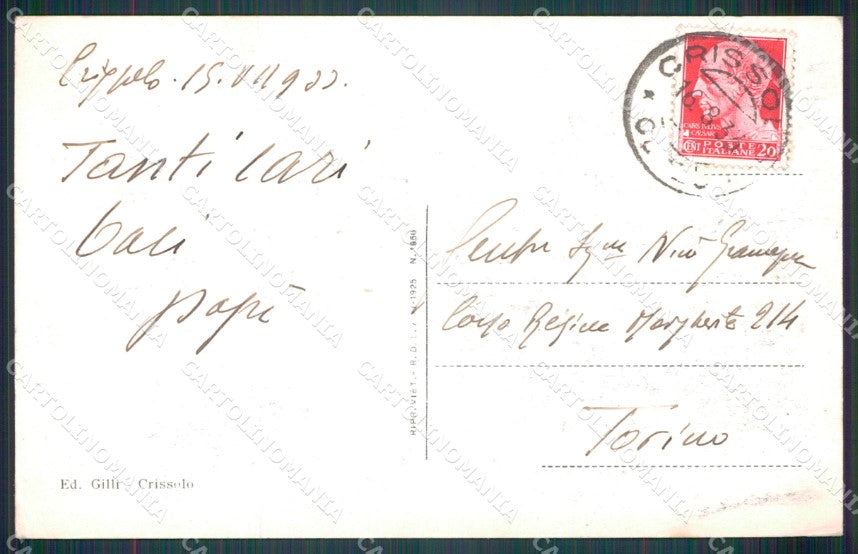 Crissolo. 15. VII 933.
Tanti cari
baci
papà
Ed. Gilli - Crissolo
RIPR. VIET. - R. D.
1925 N. 1950
CRISSOLO
CAIUS IULIUS
CAESAR
CENT POSTE ITALIANE 20
Nini
Corso Regina Margherita 214
Torino
CARTOLINOMANIA